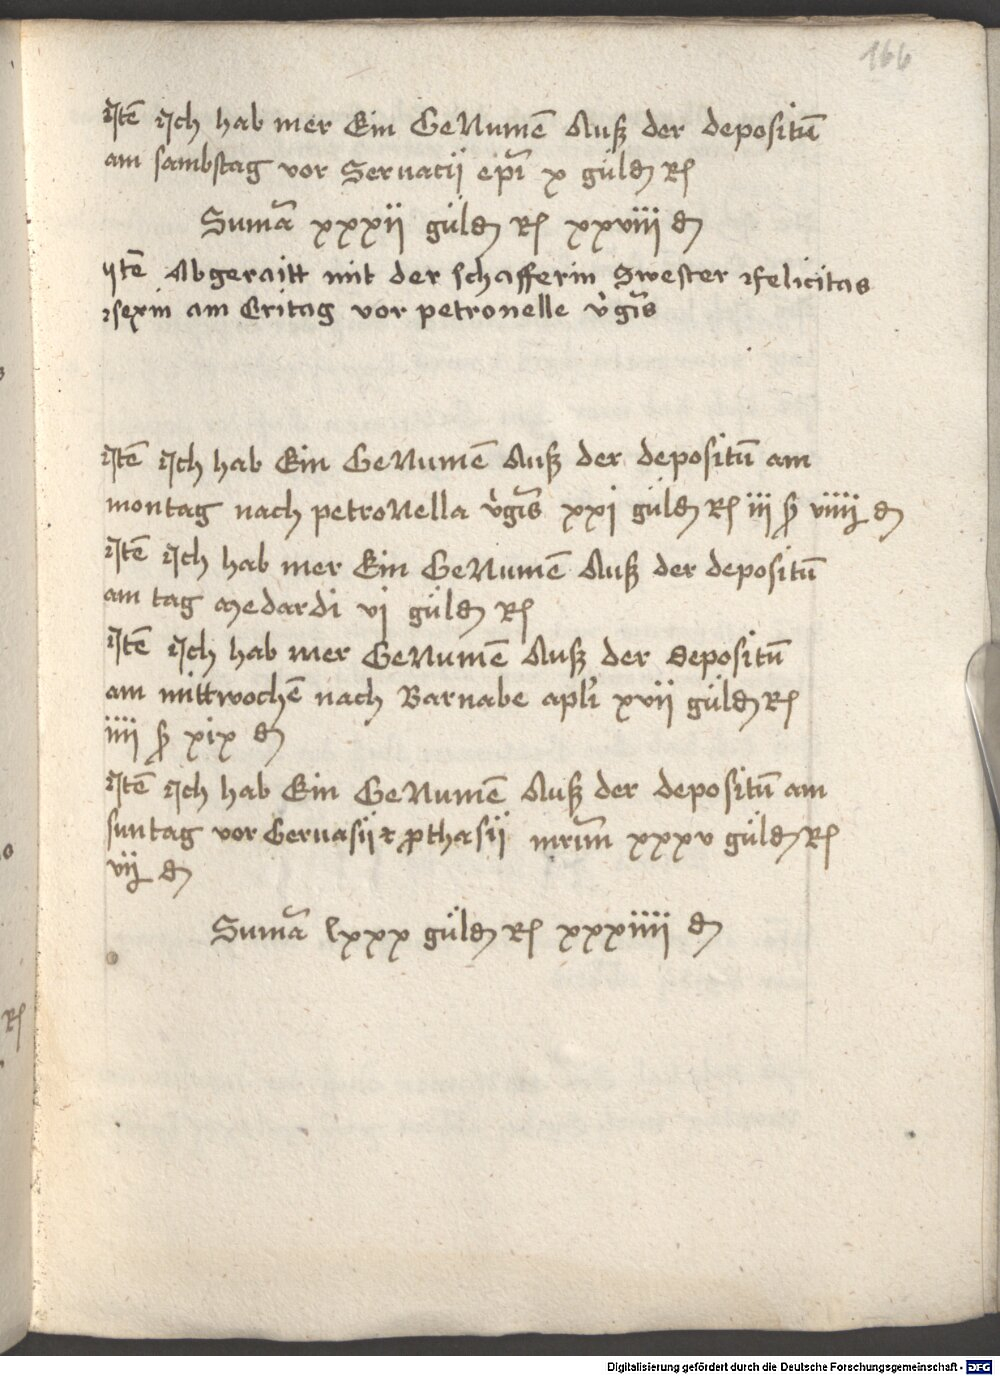 166
Itē Ich hab mer Ein GeNumē Auß der depositū
am sambstag vor Servacij epi x güldn Rh
Sumā xxxii güldn Rh xxviii dn
Itē Abgeraitt mit der schafferin Swester Felicitas
am Eritag vor petronelle v'gis
Itē Ich hab Ein GeNumē Auß der depositū am
montag nach petroNella v'gis xxi güldn Rh iii ß viiij dn
Itē Ich hab mer Ein GeNumē Auß der depositū
am tag Medardi vi güldn Rh
Itē Ich hab mer GeNumē Auß der depositū
am mittwochē nach Barnabe apl'i xvii güldn Rh
iiii ß xix dn
Itē Ich hab Ein GeNumē Auß der depositū am
suntag vor Gervasij & prothasij mrum xxxv güldn Rh
vij dn
Sumā lxxx güldn Rh xxxiiii dn
Rh
Digitalisierung gefördert durch die Deutsche Forschungsgemeinschaft - DFG